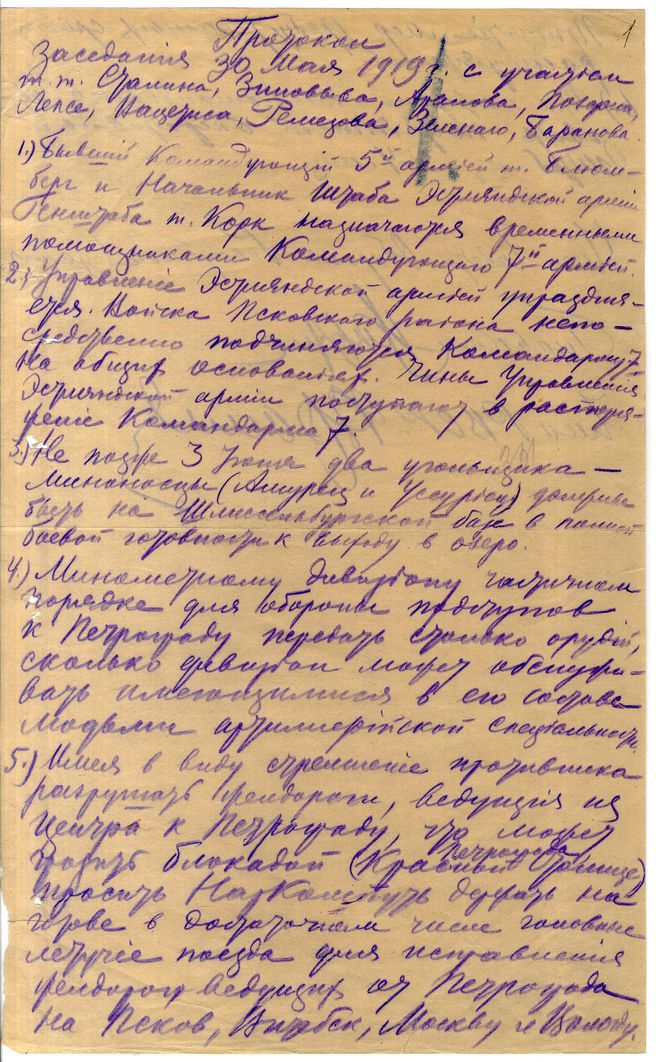 1
Протокол
Заседания 30 мая 1919 г. с участием
т.т. Сталина, Зиновьева, Аралова, Позерна,
Лепсе, Нацеренуса, Ремезова, Зеленаго, Баранова
1.) Бывший Командующий 5й армией т. Блюм-
берг и Начальник Штаба Эстляндской армии
Генштаба т. Корк назначаются временными
помощниками Командующаго 7й армией.
2.) Управление Эстляндской армией упраздня-
ется. Войска Псковского района непо-
средственно подчиняются Командарму 7
на общих основаниях. Чины Управления
Эстляндской армии поступают в распоря-
жение Командарма 7.
3.) Не позже 3 Июня два угольщика –
миноносцы (Амурец и Уссуриец) должны
быть на Шлиссельбургской базе в полной
боевой готовности к выходу в озеро.
4.) Минометному дивизіону частичном
порядке для обороны подступов
к Петрограду передать столько орудій,
сколько дивизіон может обслужи-
вать имеющимися в его составе
людьми артиллерійской спеціальности.
5.) Имея в виду стремленіе противника
разрушать жел.дороги, ведущія из
центра к Петрограду, что может
грозить блокадой Петрограда (Красной Горке)
просить НарКомПуть держать на
готове в достаточном числе головные
летучіе поезда для исправления
жел.дорог ведущих от Петрограда
на Псков, Витебск, Москву и Вологду.